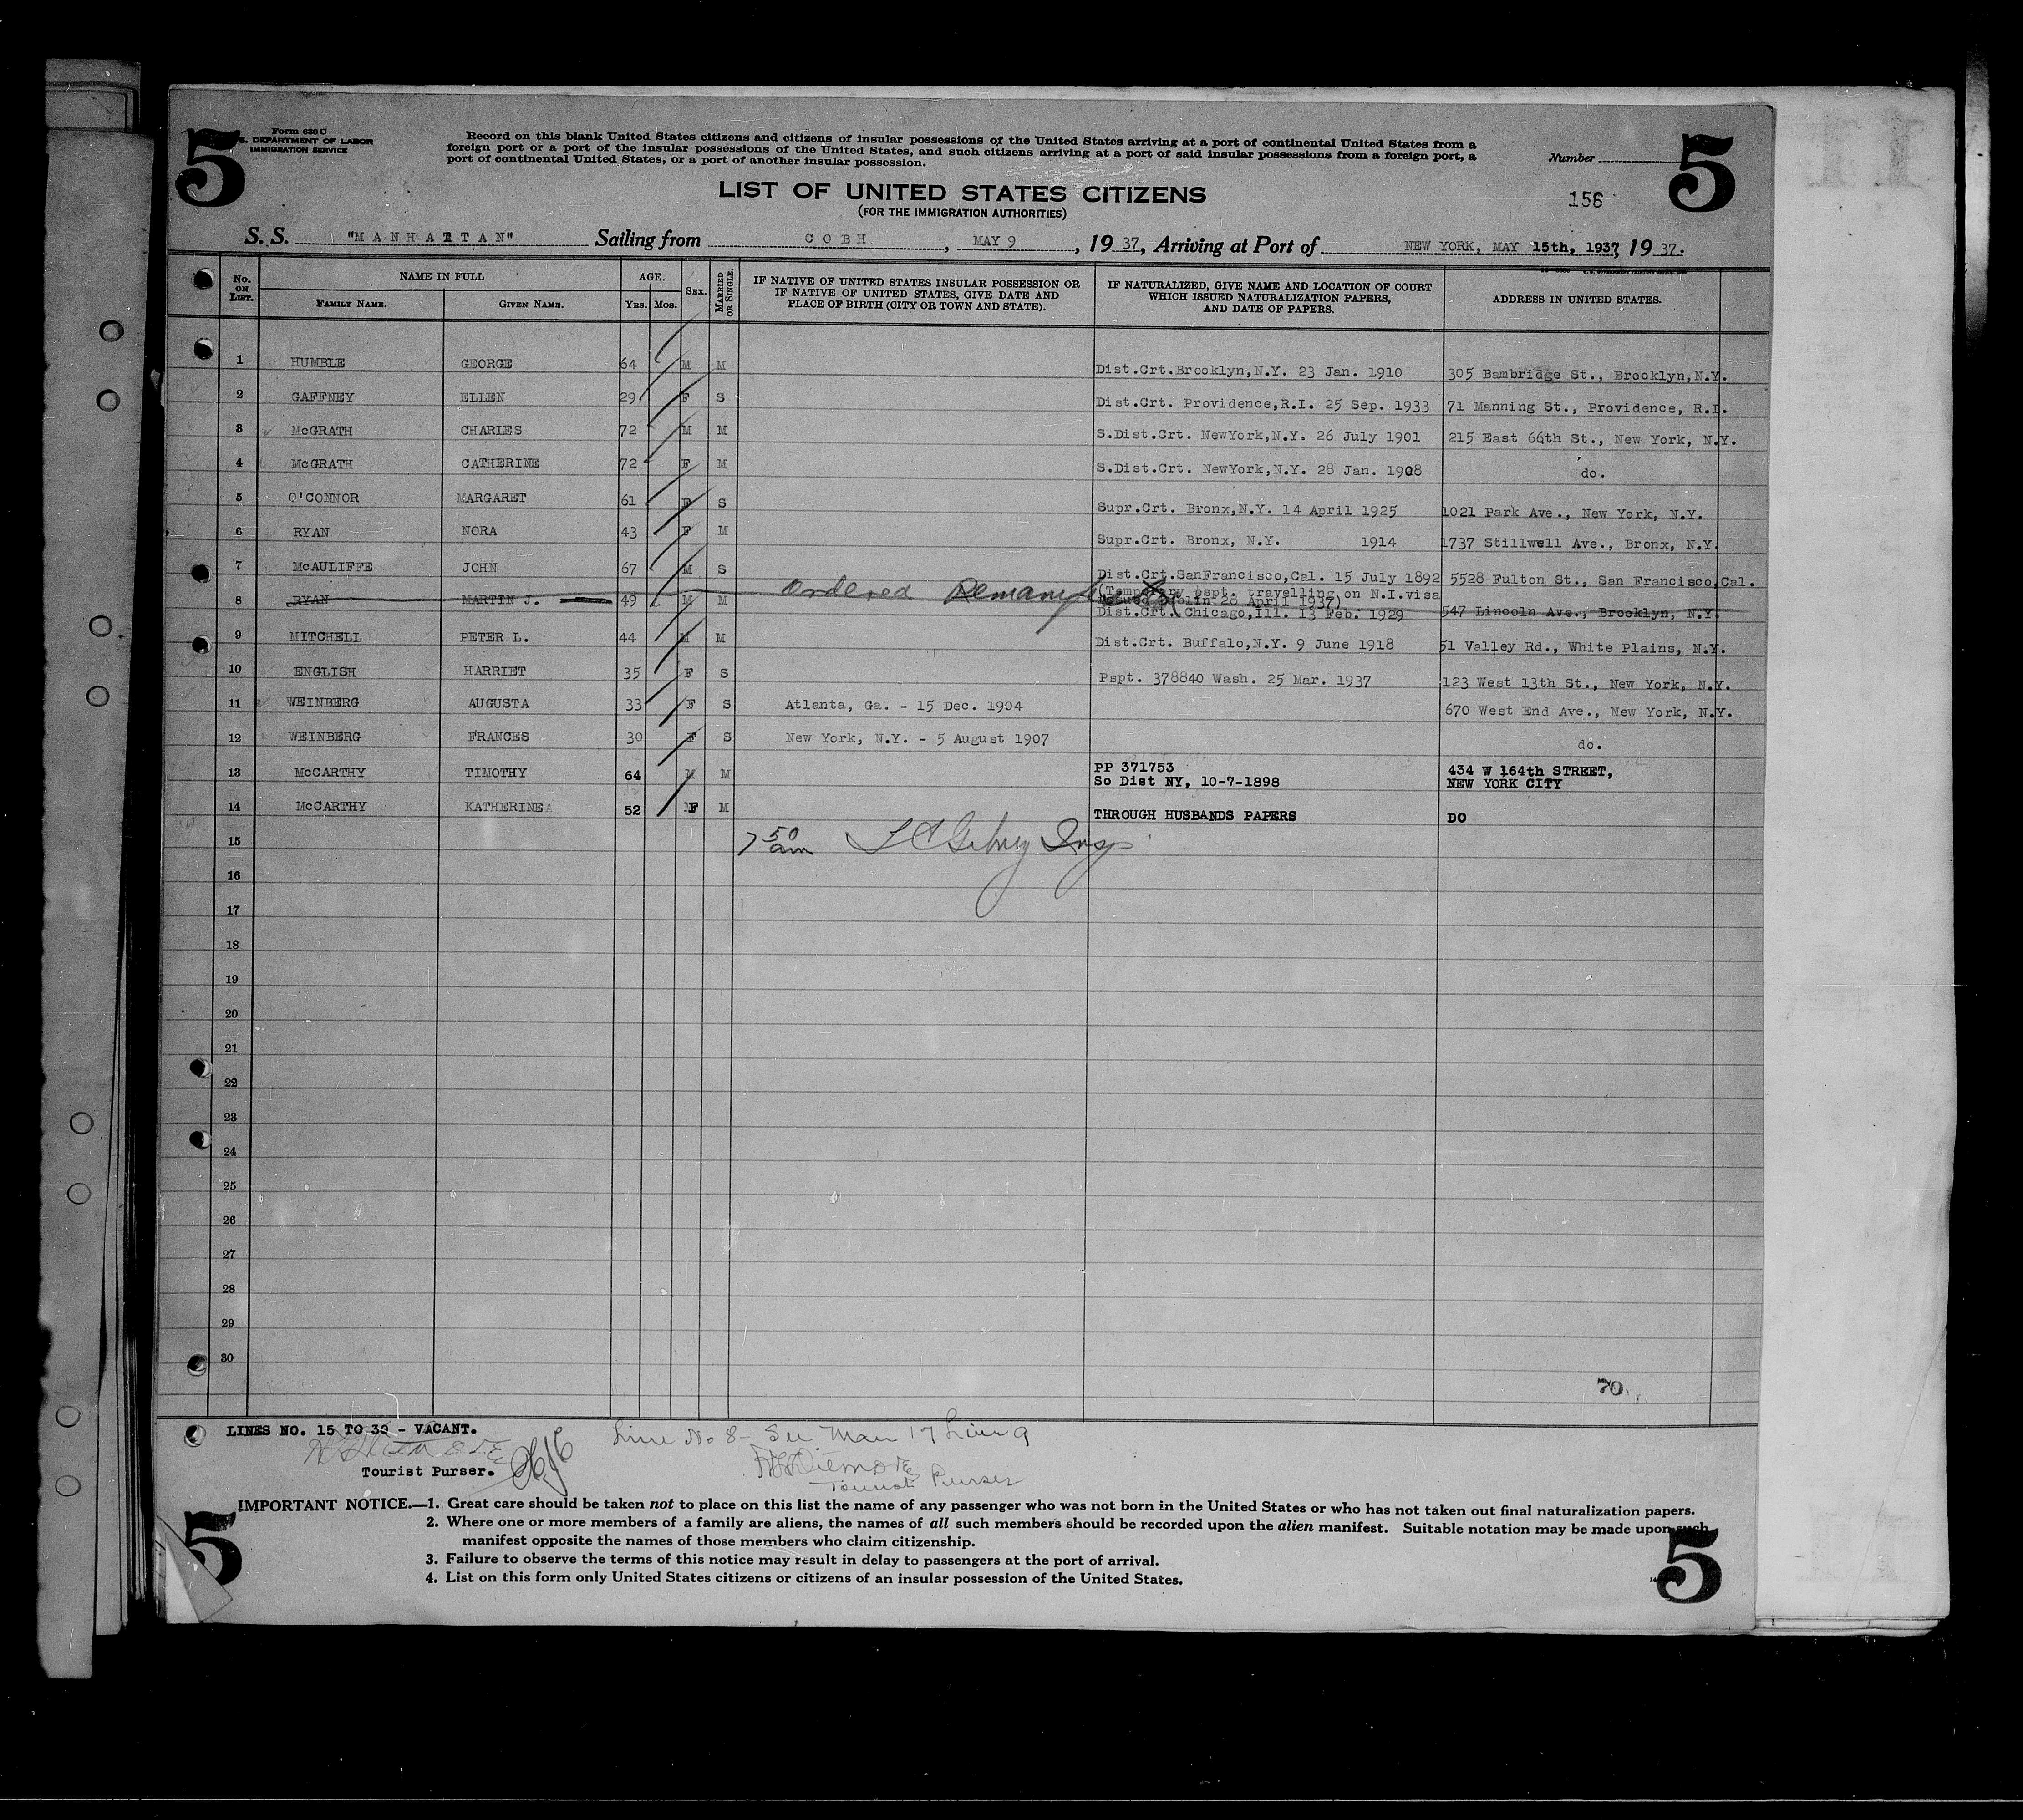 5
Form 630 C
S. DEPARTMENT OF LABOR
IMMIGRATION SERVICE
Record on this blank United States citizens and citizens of insular possessions of the United States arriving at a port of continental United States from a
foreign port or a port of the insular possessions of the United States, and such citizens arriving at a port of said insular possessions from a foreign port, a
port of continental United States, or a port of another insular possession.
Number
5
LIST OF UNITED STATES CITIZENS
156
(FOR THE IMMIGRATION AUTHORITIES)
S. S. "MANHATTAN" Sailing from COBH, MAY 9, 1937, Arriving at Port of NEW YORK, MAY 15th, 1937, 1937.
No. ON LIST. NAME IN FULL FAMILY NAME. GIVEN NAME. AGE. YRS. MOS. SEX. MARRIED OR SINGLE. IF NATIVE OF UNITED STATES INSULAR POSSESSION OR IF NATIVE OF UNITED STATES, GIVE DATE AND PLACE OF BIRTH (CITY OR TOWN AND STATE). IF NATURALIZED, GIVE NAME AND LOCATION OF COURT WHICH ISSUED NATURALIZATION PAPERS, AND DATE OF PAPERS. ADDRESS IN UNITED STATES.
1 HUMBLE GEORGE 64 M M Dist.Crt.Brooklyn,N.Y. 23 Jan. 1910 305 Bambridge St., Brooklyn,N.Y.
2 GAFFNEY ELLEN 29 F S Dist.Crt. Providence,R.I. 25 Sep. 1933 71 Manning St., Providence, R.I.
3 McGRATH CHARLES 72 M M S.Dist.Crt. NewYork,N.Y. 26 July 1901 215 East 66th St., New York, N.Y.
4 McGRATH CATHERINE 72 F M S.Dist.Crt. NewYork,N.Y. 28 Jan. 1908 do.
5 O'CONNOR MARGARET 61 F S Supr.Crt. Bronx,N.Y. 14 April 1925 1021 Park Ave., New York, N.Y.
6 RYAN NORA 43 F M Supr.Crt. Bronx, N.Y. 1914 1737 Stillwell Ave., Bronx, N.Y.
7 McAULIFFE JOHN 67 M S Dist.Crt.SanFrancisco,Cal. 15 July 1892 5528 Fulton St., San Francisco,Cal.
Ordered (Temporary pspt. travelling on N.I.visa
issued Dublin 28 April 1937)
8 RYAN MARTIN J. 49 M M Dist.Crt. Chicago,Ill. 13 Feb. 1929 547 Lincoln Ave., Brooklyn, N.Y.
9 MITCHELL PETER L. 44 M M Dist.Crt. Buffalo,N.Y. 9 June 1918 51 Valley Rd., White Plains, N.Y.
10 ENGLISH HARRIET 35 F S Pspt. 378840 Wash. 25 Mar. 1937 123 West 13th St., New York, N.Y.
11 WEINBERG AUGUSTA 33 F S Atlanta, Ga. - 15 Dec. 1904 670 West End Ave., New York, N.Y.
12 WEINBERG FRANCES 30 F S New York, N.Y. - 5 August 1907 do.
13 McCARTHY TIMOTHY 64 M M PP 371753 434 W 164th STREET,
So Dist NY, 10-7-1898 NEW YORK CITY
14 McCARTHY KATHERINE 52 F M THROUGH HUSBANDS PAPERS DO
7 50 am
15
16
17
18
19
20
21
22
23
24
25
26
27
28
29
30
70
LINES NO. 15 TO 30 - VACANT.
Line No 8 - See Man 17 Line 9
Tourist Purser.
Tourist Purser
IMPORTANT NOTICE.—1. Great care should be taken not to place on this list the name of any passenger who was not born in the United States or who has not taken out final naturalization papers.
2. Where one or more members of a family are aliens, the names of all such members should be recorded upon the alien manifest. Suitable notation may be made upon such
manifest opposite the names of those members who claim citizenship.
3. Failure to observe the terms of this notice may result in delay to passengers at the port of arrival.
4. List on this form only United States citizens or citizens of an insular possession of the United States.
5
5